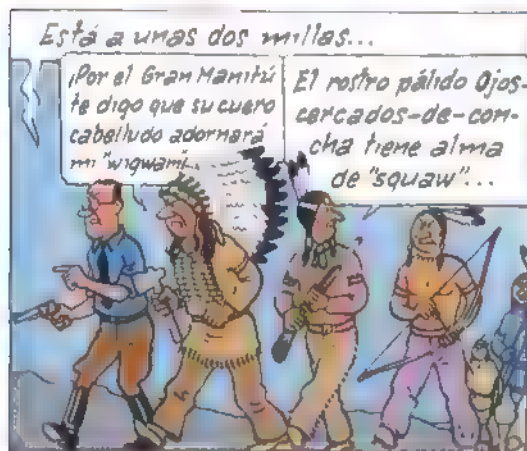 Está a unas dos millas...
¡Por el Gran Manitú
te digo que su cuero
cabelludo adornará
mi "wigwam"...
El rostro pálido Ojos-
cercados-de-con-
cha tiene alma
de "squaw"...